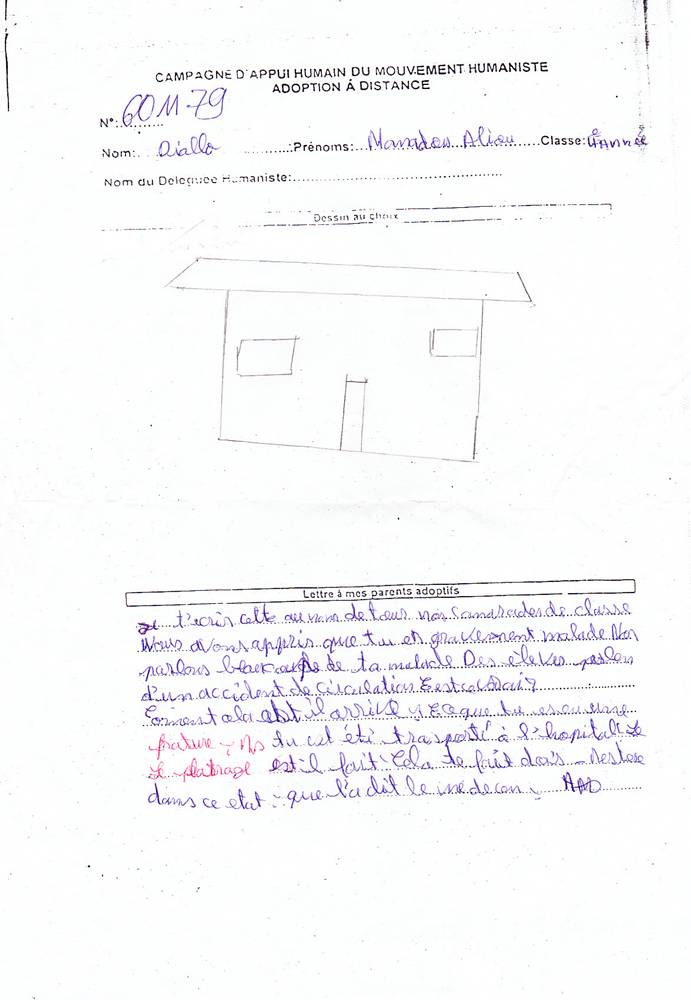 CAMPAGNE D'APPUI HUMAIN DU MOUVEMENT HUMANISTE
ADOPTION À DISTANCE
N°: 601179
Nom: Diallo Prénoms: Mamadou Aliou Classe: 4è Année
Nom du Deleguee Humaniste:
Dessin au choix
Lettre à mes parents adoptifs
Je t'ecris cette au nom de tous nos Camarades de classe
Nous avons appris que tu es gravement malade Nou
parlons beaucoup de ta maladie Des élèves parlen
d'un accident de circulation Est ce vrai?
Coment cela est il arrivé ? Ece que tu es eu une
frature tu est été trasporté à l'hopital? Le
Le platrage est il fait? Cela te fait
dans ce etat que l'a dit le medecen